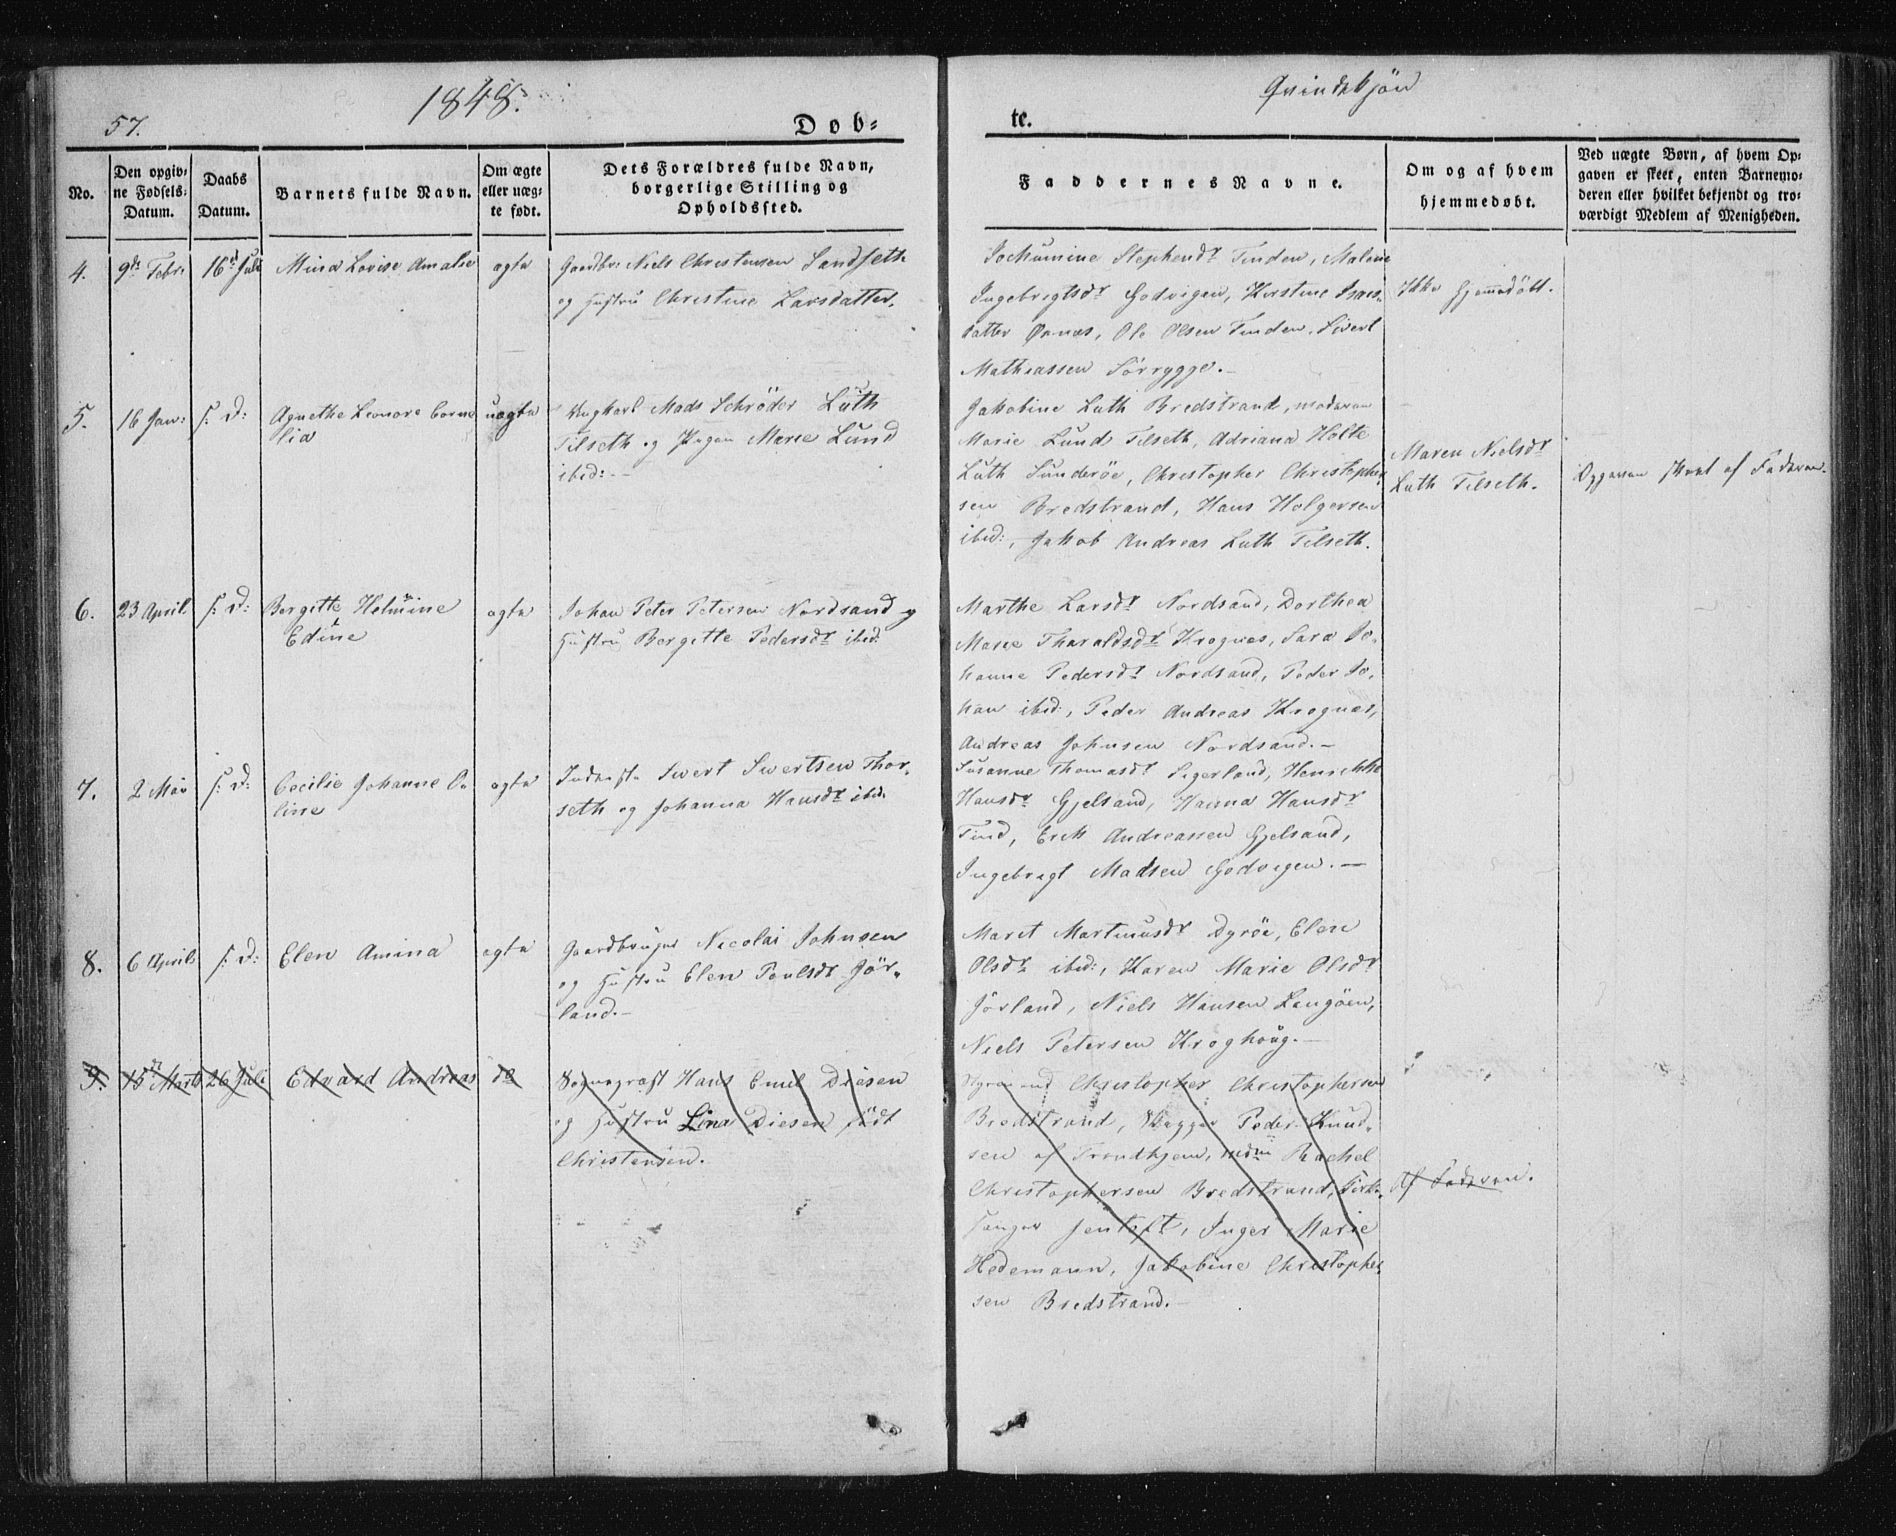 57.
1848.
Døb=
te.
Qvindekjön
No.
Den opgiv=
ne Fødsels=
Datum.
Daabs
Datum.
Barnets fulde Navn.
Om ægte
eller uæg=
te født.
Dets Forældres fulde Navn,
borgerlige Stilling og
Opholdssted.
Faddernes Navne.
Om og af hvem
hjemmedøbt.
Ved uægte Børn, af hvem Op=
gaven er skeet, enten Barnemo=
deren eller hvilket bekjendt og tro=
værdigt Medlem af Menigheden.
4.
9de Febr:
16de Juli
Mina Lovise Amalie
ægte
Gaardbr: Niels Christensen Sandseth
og Hustru Christine Larsdatter.
Jochumine Stephensdr Tinden, Maline
Ingebrigtsdr Godvigen, Kirstine Isaks=
datter Qvnæs, Ole Olsen Tinden, Sivert
Mathiassen Sörrygge.
Ikke hjemmedöbt.
5.
16 Jan:
s: D:
Agnethe Leonore Corne
lia
uægte
Ungkarl Mads Schröder Luth
Tilseth og Pigen Marie Lund
ibid:
Jakobine Luth Bredstrand, moderen
Marie Lund Tilseth, Adriana Holte
Luth Sunderöe, Christopher Christopher
sen Bredstrand, Hans Holgersen
ibid:, Jakob Andreas Luth Tilseth.
Maren Nielsdr
Luth Tilseth.
Opgaven skeet af Faderen.
6.
23 April
s: D:
Bergitte Helmine
Edine
ægte
Johan Peter Petersen Nordsand og
Hustru Bergitte Pedersdr ibid:
Marthe Larsdr Nordsand, Dorthea
Marie Tharaldsdr Krognæs, Sara Jo=
hanne Pedersdr Nordsand, Peder Jo=
han ibid:, Peder Andreas Krognæs,
Andreas Johnsen Nordsand.
7.
2 Mai
s: D:
Cecilie Johanne O=
line
ægte
Inderste Sivert Sivertsen Thor=
seth og Johanna Hansdr ibid:
Susanne Thomasdr Sigerland, Henrikke
Hansdr Gjelsand, Hanna Hansdr
Tind, Erik Andreassen Gjelsand,
Ingebrigt Madsen Godvigen.
8.
6 April
s: D:
Elen Amina
ægte
Gaardbruger Nicolai Johnsen
og Hustru Elen Poulsdr Jör=
land.
Marit Martinusdr Dyröe, Elen
Olsdr ibid:, Karen Marie Olsdr
Jörland, Niels Hansen Langöen,
Niels Petersen Kroghoug.
9.
15de Marts
26 Juli
Edvard Andreas
do
Sognepræst Hans Emil Diesen
og Hustru Lina Diesen födt
Christensen.
Christopher Christophersen
Bredstrand, Peder Knud=
sen af Trondhjem, mdm Rachel
Christophersen Bredstrand, Kirke=
sanger Jentoft, Inger Marie
Hedemann, Jakobine Christopher
sen Bredstrand.
Af Faderen.